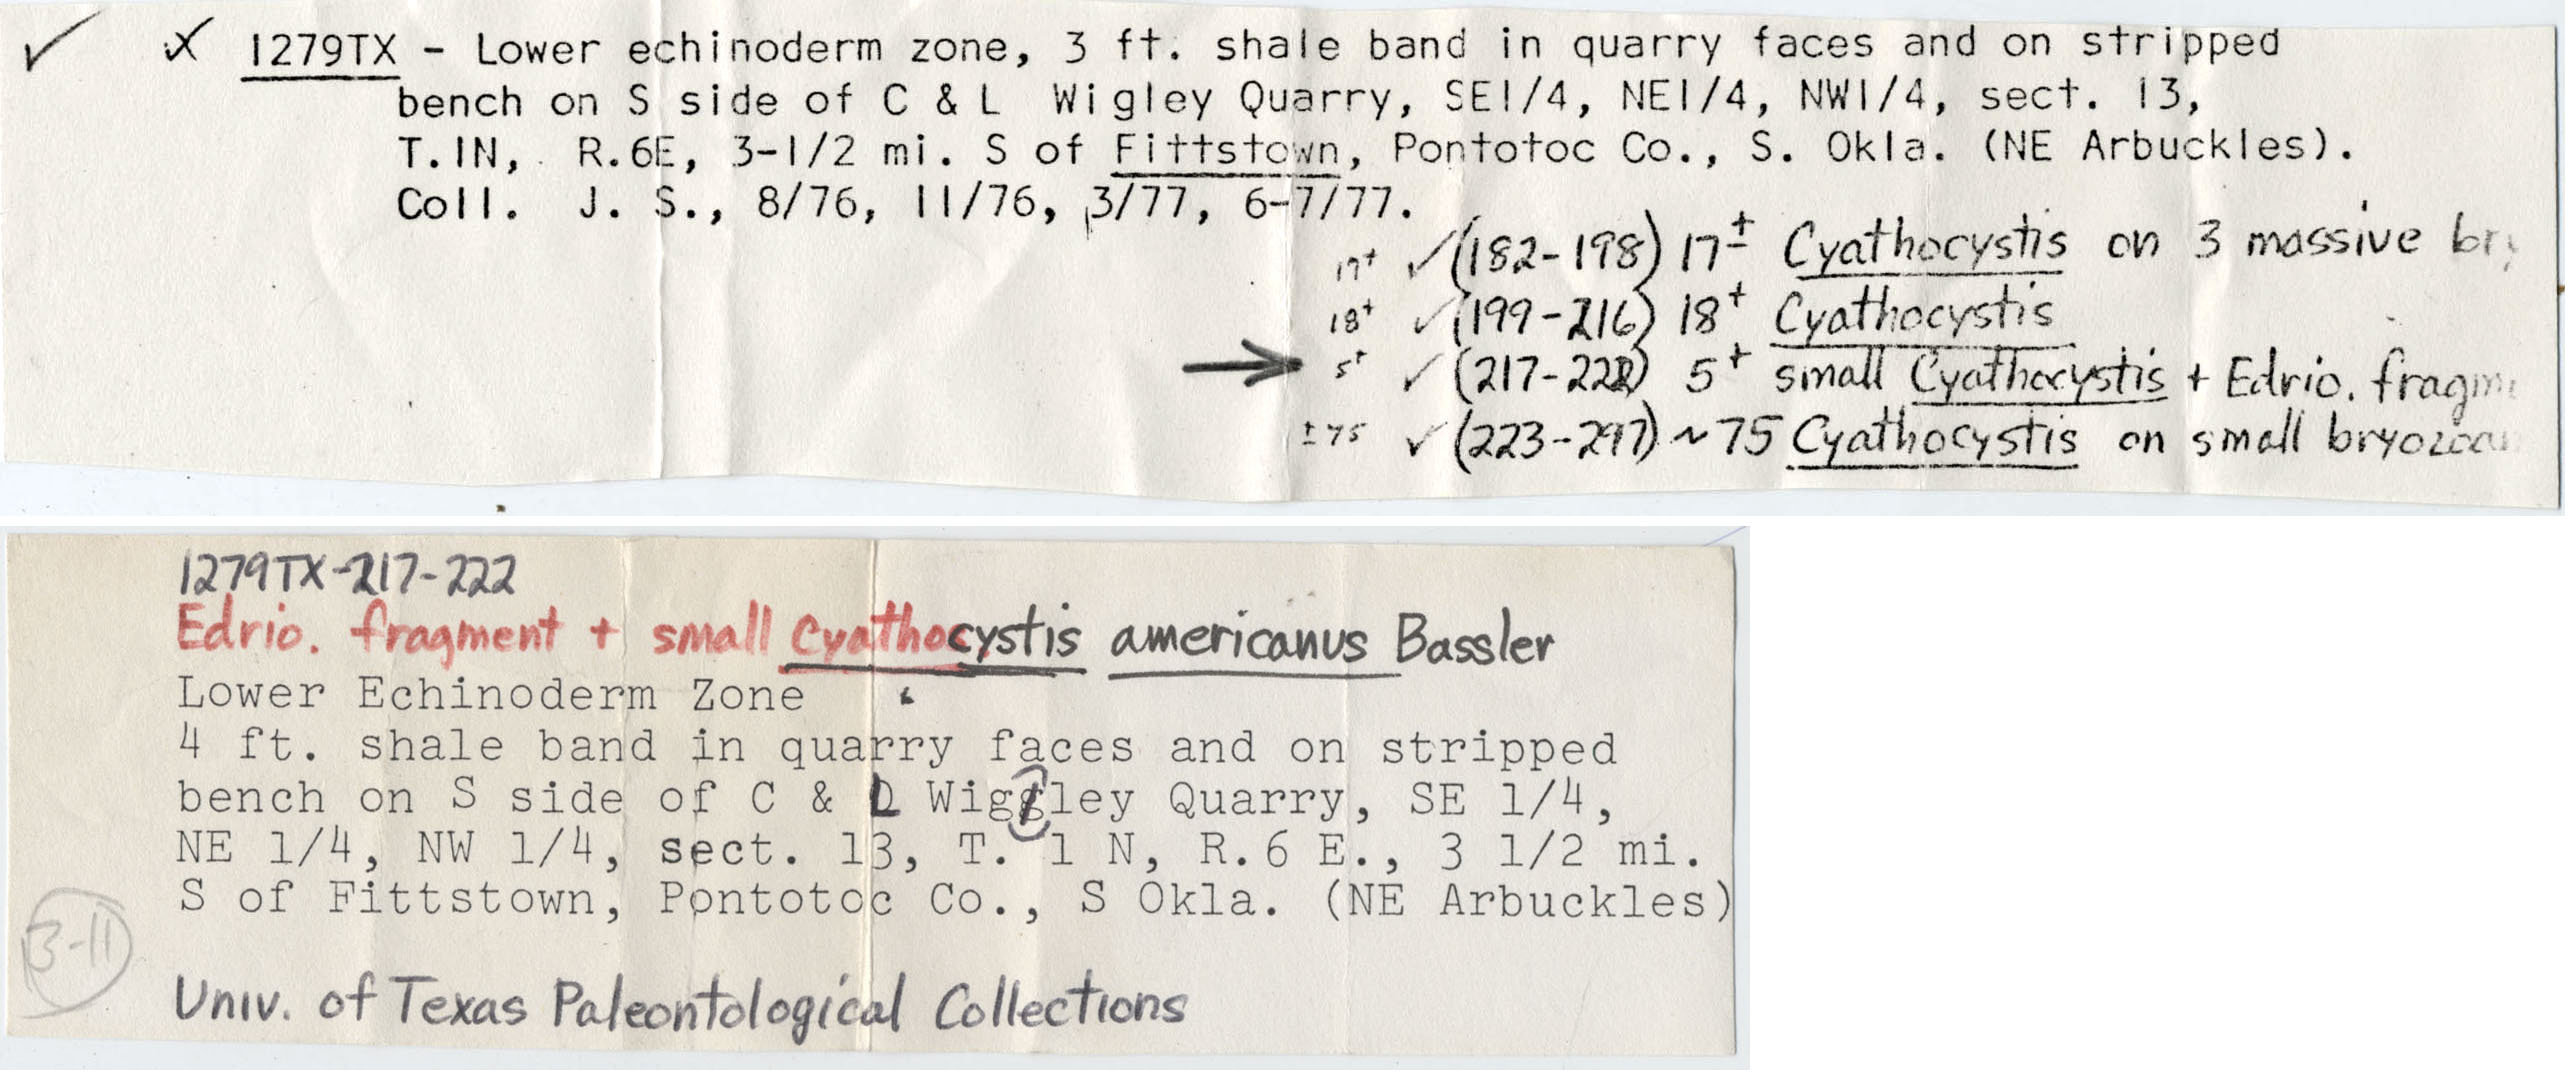 ✓ X 1279TX - Lower echinoderm zone, 3 ft. shale band in quarry faces and on stripped
bench on S side of C & L Wigley Quarry, SE1/4, NE1/4, NW1/4, sect. 13,
T.1N, R.6E, 3-1/2 mi. S of Fittstown, Pontotoc Co., S. Okla. (NE Arbuckles).
Coll. J. S., 8/76, 11/76, 3/77, 6-7/77.
17+ ✓ (182-198) 17± Cyathocystis on 3 massive
18+ ✓ (199-216) 18+ Cyathocystis
→ 5+ ✓ (217-222) 5+ small Cyathocystis + Edrio.
±75 ✓ (223-297) ~75 Cyathocystis on small
1279TX-217-222
Edrio. fragment + small Cyathocystis americanus Bassler
Lower Echinoderm Zone
4 ft. shale band in quarry faces and on stripped
bench on S side of C & L Wigley Quarry, SE 1/4,
NE 1/4, NW 1/4, sect. 13, T. 1 N, R.6 E., 3 1/2 mi.
S of Fittstown, Pontotoc Co., S Okla. (NE Arbuckles)
3-11
Univ. of Texas Paleontological Collections